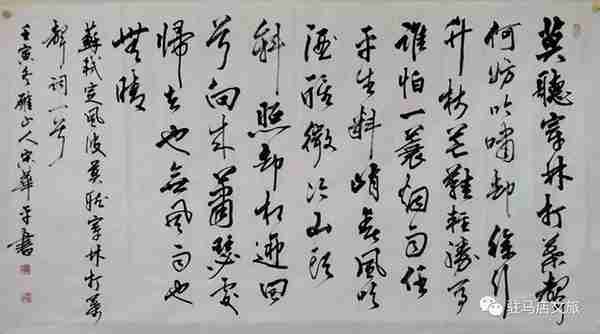 莫聽穿林打葉聲
何妨吟嘯却徐行
竹杖芒鞋輕勝馬
誰怕一蓑烟雨任
平生料峭春風吹
酒醒微冷山頭
斜照却相迎回
首向来蕭瑟處
歸去也無風雨也
無晴
蘇軾定風波莫聽穿林打葉
聲詞一首
壬寅冬雁山人宋華平書
驻马店文旅